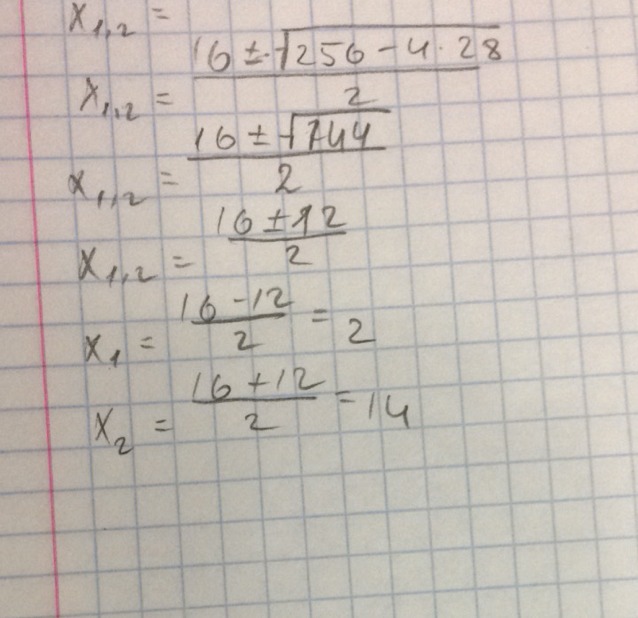 x₁,₂ =
x₁,₂ = (16 ± √(256 - 4·28)) / 2
x₁,₂ = (16 ± √144) / 2
x₁,₂ = (16 ± 12) / 2
x₁ = (16 - 12) / 2 = 2
x₂ = (16 + 12) / 2 = 14